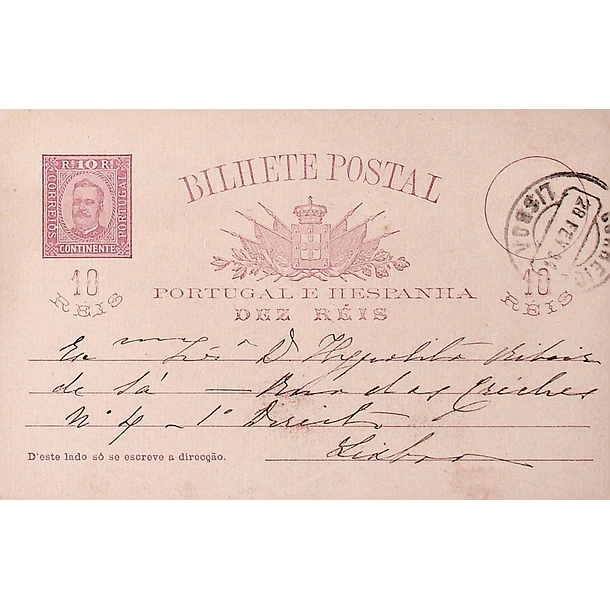 Rs 10 Rs
CORREIOS
PORTUGAL
CONTINENTE
BILHETE POSTAL
10
RÉIS
PORTUGAL E HESPANHA
DEZ RÉIS
10
RÉIS
CORREIO
LISBOA
28 FEV
Hypolito Ribeiro
de Sá — Rua das Créches
Nº 4 - 1º Direito
Lisboa
D'este lado só se escreve a direcção.